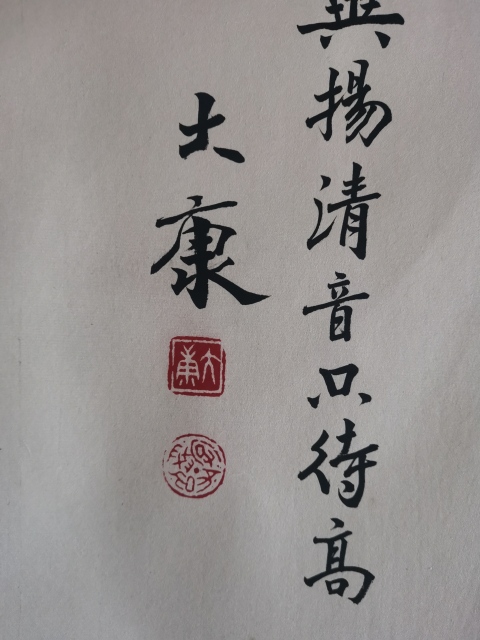 揚清音只待高
大康
大康